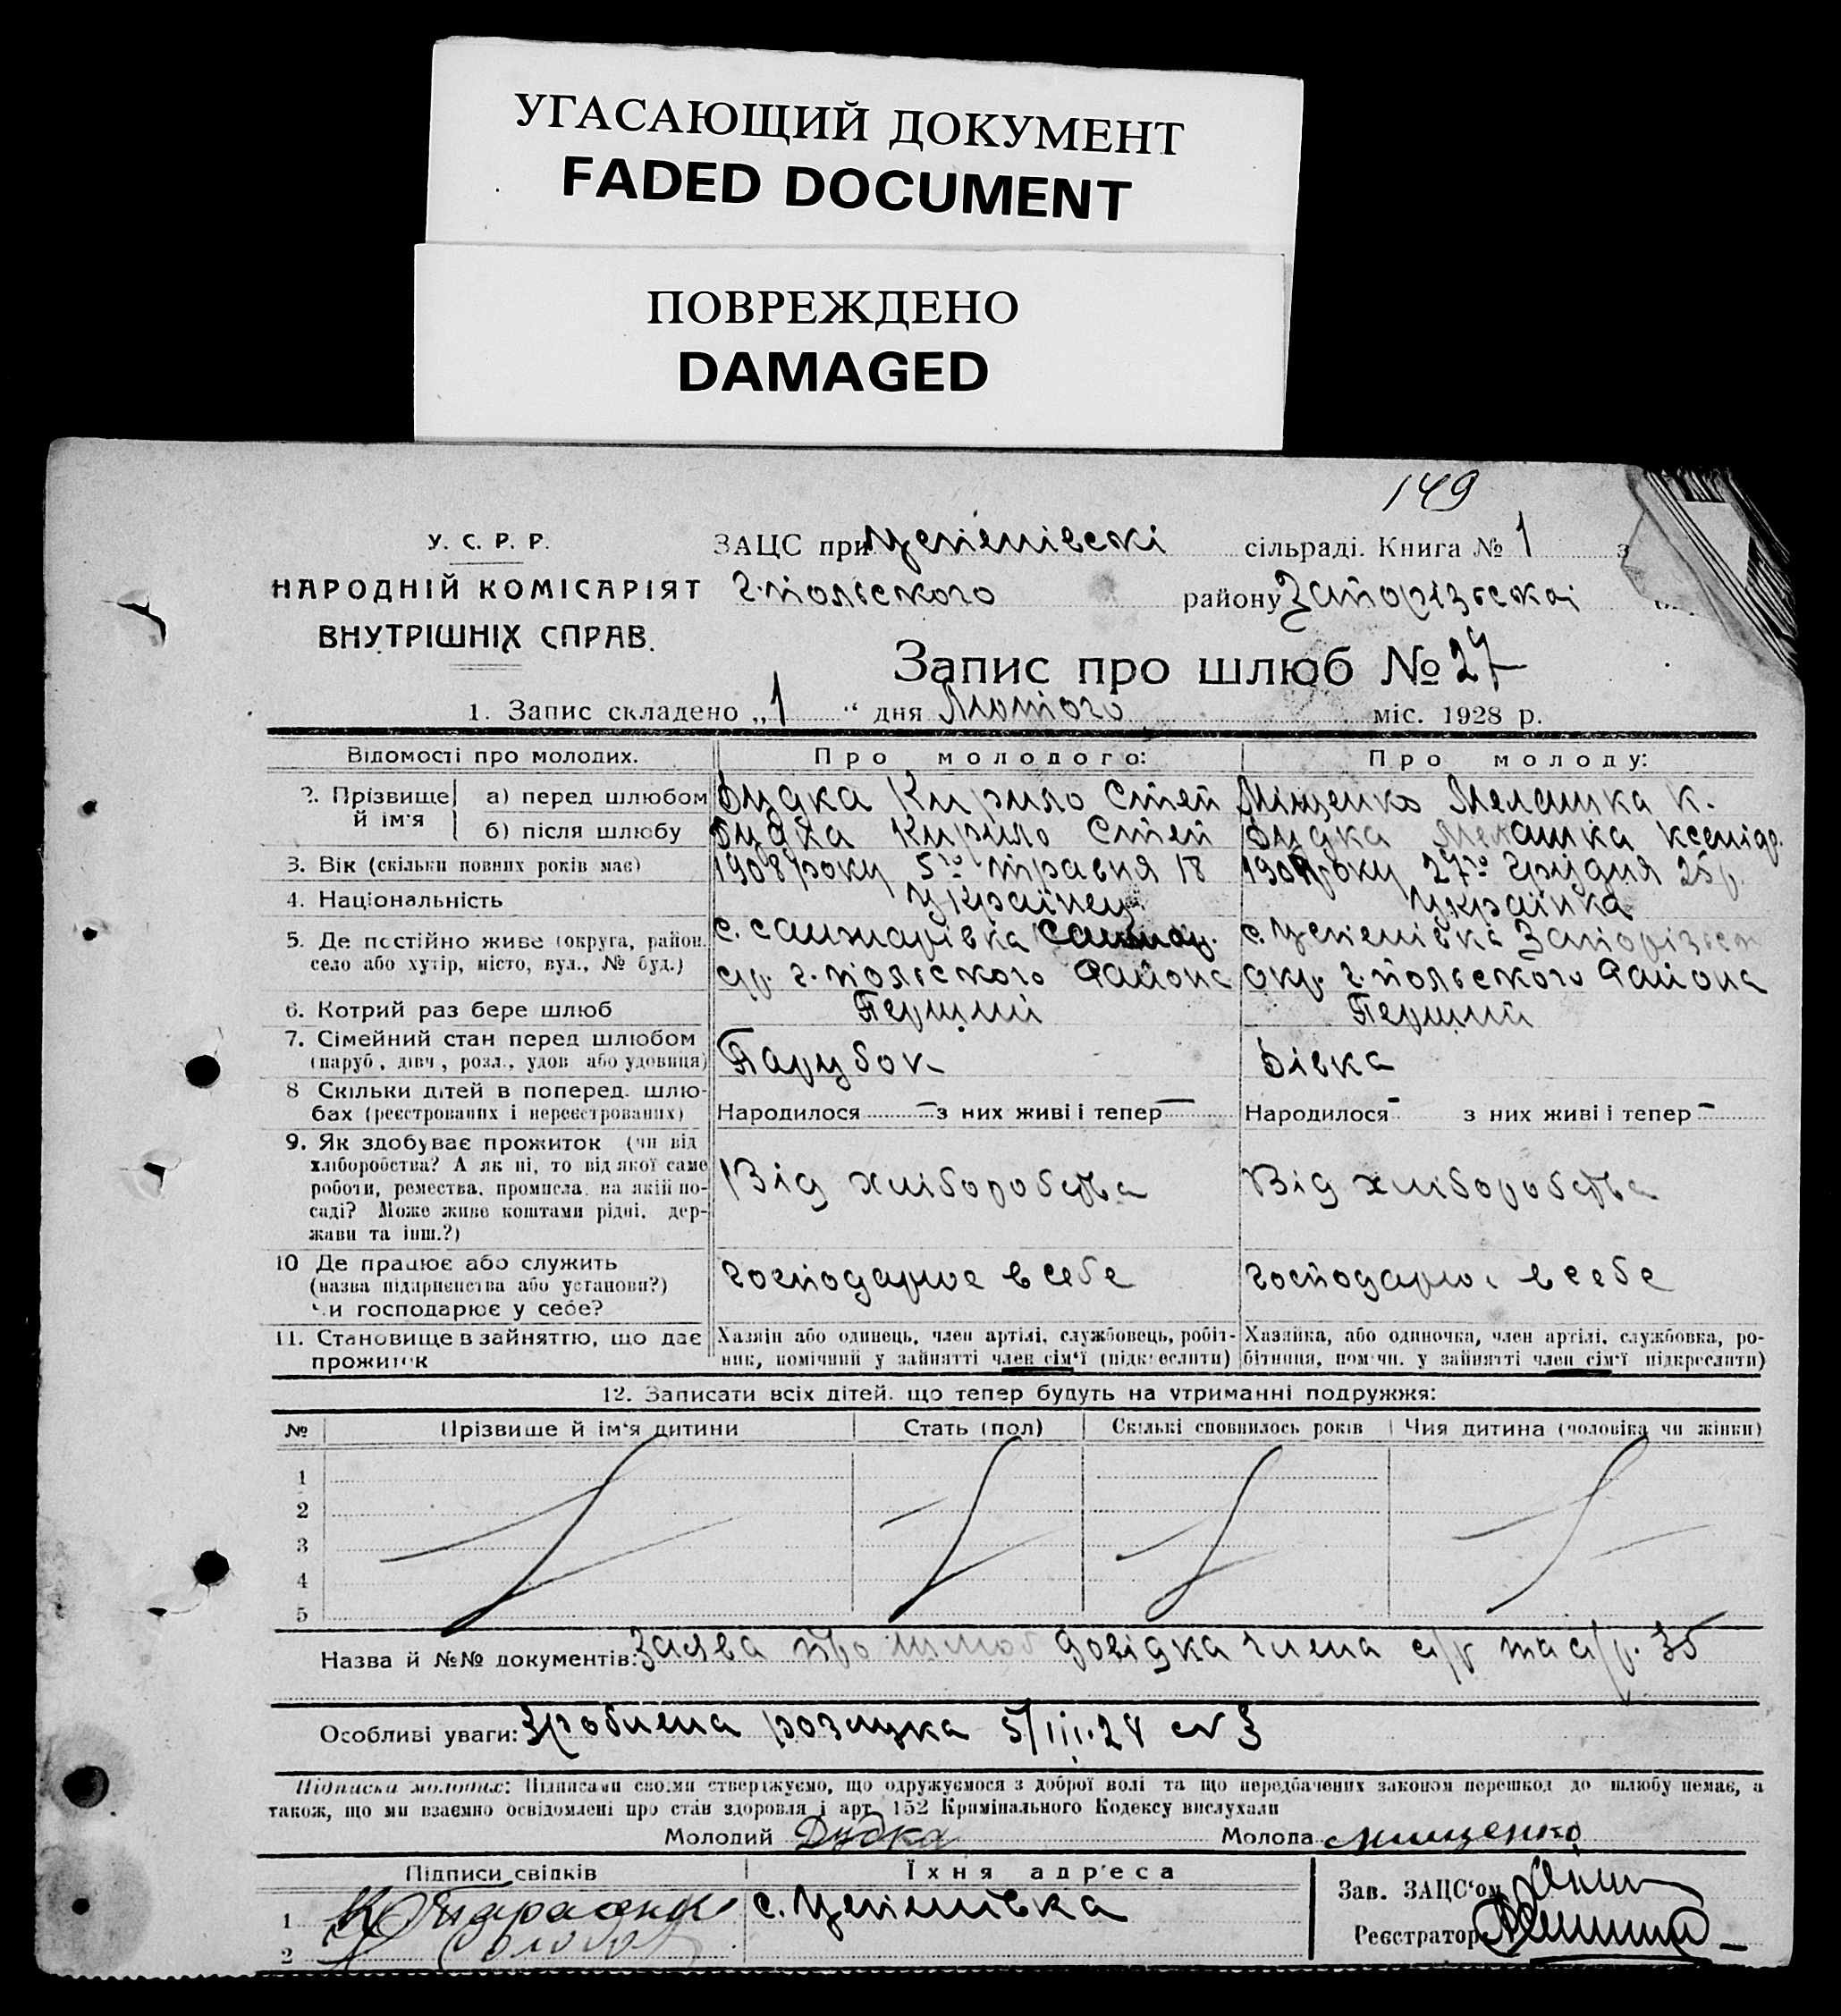 УГАСАЮЩИЙ ДОКУМЕНТ
FADED DOCUMENT
ПОВРЕЖДЕНО
DAMAGED
149
У. С. Р. Р.
НАРОДНІЙ КОМІСАРІЯТ
ВНУТРІШНІХ СПРАВ.
ЗАЦС при Успенівські сільраді. Книга № 1 з
г.польского району Запорізької
Запис про шлюб № 27
1. Запис складено „1“ дня Лютого міс. 1928 р.
Відомості про молодих. Про молодого: Про молоду:
2. Прізвище й ім'я
а) перед шлюбом Дудка Кирило Степ Міщенко Мелашка К.
б) після шлюбу Дудка Кирило Степ Дудка Мелашка
3. Вік (скільки повних років має) 1908 року 5го травня 18 року 27го Грудня
4. Національність Українец Українка
5. Де постійно живе (округа, район, село або хутір, місто, вул., № буд.)
с. Санжарівка с. Успенівка
г.польского Района окр. г.польского Района
6. Котрий раз бере шлюб Перший Перший
7. Сімейний стан перед шлюбом
(паруб., дівч., розл., удов. або удовиця) Парубок Дівка
8 Скільки дітей в поперед. шлюбах (реєстрованих і нереєстрованих)
Народилося — з них живі і тепер — Народилося - з них живі і тепер -
9. Як здобуває прожиток (чи від
хліборобства? А як ні, то від якої саме
роботи, ремества, промисла, на якій по-
саді? Може живе коштами рідні, дер-
жави та інш.?)
Від хліборобства Від хліборобства
10 Де працює або служить
(назва підприємства або установи?)
чи господарює у себе?
господарює в себе господарює в себе
11. Становище в зайняттю, що дає
прожиток
Хазяїн або одинець, член артілі, службовець, робіт-
ник, помічний у зайнятті член сім'ї (підкреслити)
Хазяйка, або одиночка, член артілі, службовка, ро-
бітниця, помічн. у зайнятті член сім'ї підкреслити)
12. Записати всіх дітей, що тепер будуть на утриманні подружжя:
№ Прізвище й ім'я дитини Стать (пол) Скількі сповнилось років Чия дитина (чоловіка чи жінки)
1
2
3
4
5
Назва й №№ документів: Заява про шлюб довідка члена с/р та с/р. 35
Особливі уваги: Зроблена розлука 5/III.28 № 3
Підписки молодих: Підписами своїми стверджуємо, що одружуємося з доброї волі та що передбачених законом перешкод до шлюбу немає, а
також, що ми взаємно освідомлені про стан здоровля і арт. 152 Кримінального Кодексу вислухали
Молодий Дудка Молода Мищенко
Підписи свідків Їхня адреса
1 с. Успенівка
2
Зав. ЗАЦС'ом
Реєстратор